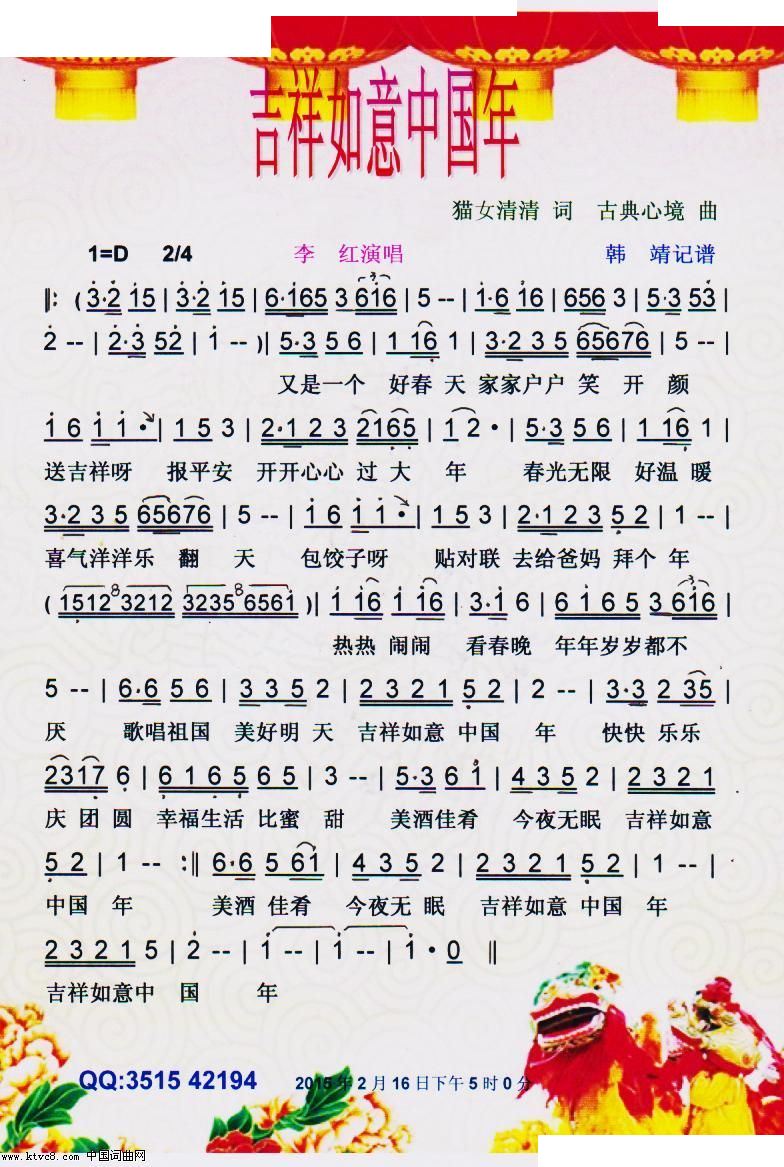 吉祥如意中国年
猫女清清 词 古典心境 曲
1=D 2/4 李 红演唱 韩 靖记谱
‖: ( 3·2 15 | 3·2 15 | 6·165 3 616 | 5 -- | 1·6 16 | 656 3 | 5·3 53 |
2 -- | 2·3 52 | 1 -- )| 5·3 56 | 1 16 1 | 3·2 3 5 65676 | 5 -- |
又是一个 好春 天 家家户户 笑 开 颜
1 6 1 1· | 1 5 3 | 2·1 2 3 2165 | 1 2· | 5·3 5 6 | 1 16 1 |
送吉祥呀 报平安 开开心心 过 大 年 春光无限 好温 暖
3·2 3 5 65676 | 5 -- | 1 6 1 1· | 1 5 3 | 2·1 2 3 5 2 | 1 -- |
喜气洋洋乐 翻 天 包饺子呀 贴对联 去给爸妈 拜个 年
( 15123212 32356561 )| 1 16 1 16 | 3·1 6 | 6 1 6 5 3 616 |
热热 闹闹 看春晚 年年岁岁都不
5 -- | 6·6 5 6 | 3 3 5 2 | 2 3 2 1 5 2 | 2 -- | 3·3 2 35 |
厌 歌唱祖国 美好明 天 吉祥如意 中国 年 快快 乐乐
2317 6 | 6 1 6 5 6 5 | 3 -- | 5·3 6 1 | 4 3 5 2 | 2 3 2 1
庆 团 圆 幸福生活 比蜜 甜 美酒佳肴 今夜无眠 吉祥如意
5 2 | 1 -- :‖ 6·6 5 61 | 4 3 5 2 | 2 3 2 1 5 2 | 1 -- |
中国 年 美酒 佳肴 今夜无 眠 吉祥如意 中国 年
2 3 2 1 5 | 2 -- | 1 -- | 1 -- | 1·0 ‖
吉祥如意中 国 年
QQ:3515 42194 2015年2月16日下午5时0分
www.ktvc8.com 中国词曲网